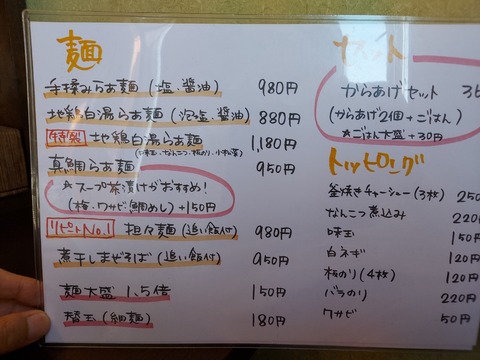 麺
手揉みらぁ麺 (塩・醤油) 980円
地鶏白湯らぁ麺 (泡塩・醤油) 880円
特製 地鶏白湯らぁ麺 1,180円
真鯛らぁ麺 950円
★スープ茶漬けがおすすめ!
(梅・ワサビ・鯛めし) +150円
リピートNo.1 担々麺 (追い飯付) 980円
煮干しまぜそば (追い飯付) 950円
麺大盛 1.5倍 150円
替玉 (細麺) 180円
セット
からあげセット
(からあげ2個+ごはん)
★ごはん大盛+30円
トッピング
釜焼きチャーシュー (3枚) 250
なんこつ煮込み 220
味玉 150
白ネギ 120
板のり (4枚) 120
バラのり 220
ワサビ 50